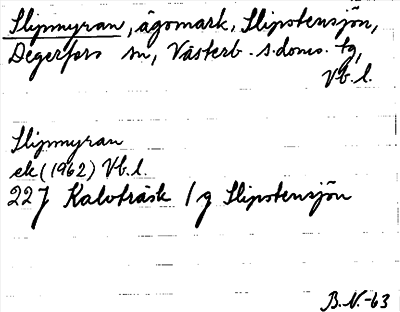 Slipmyran, ägomark, Slipstensjön,
Degerfors sn, Västerb. s. doms. tg,
Vb. l.
Slipmyran
ek (1962) Vb. l.
227 Kalvträsk /g Slipstensjön
B.N.-63